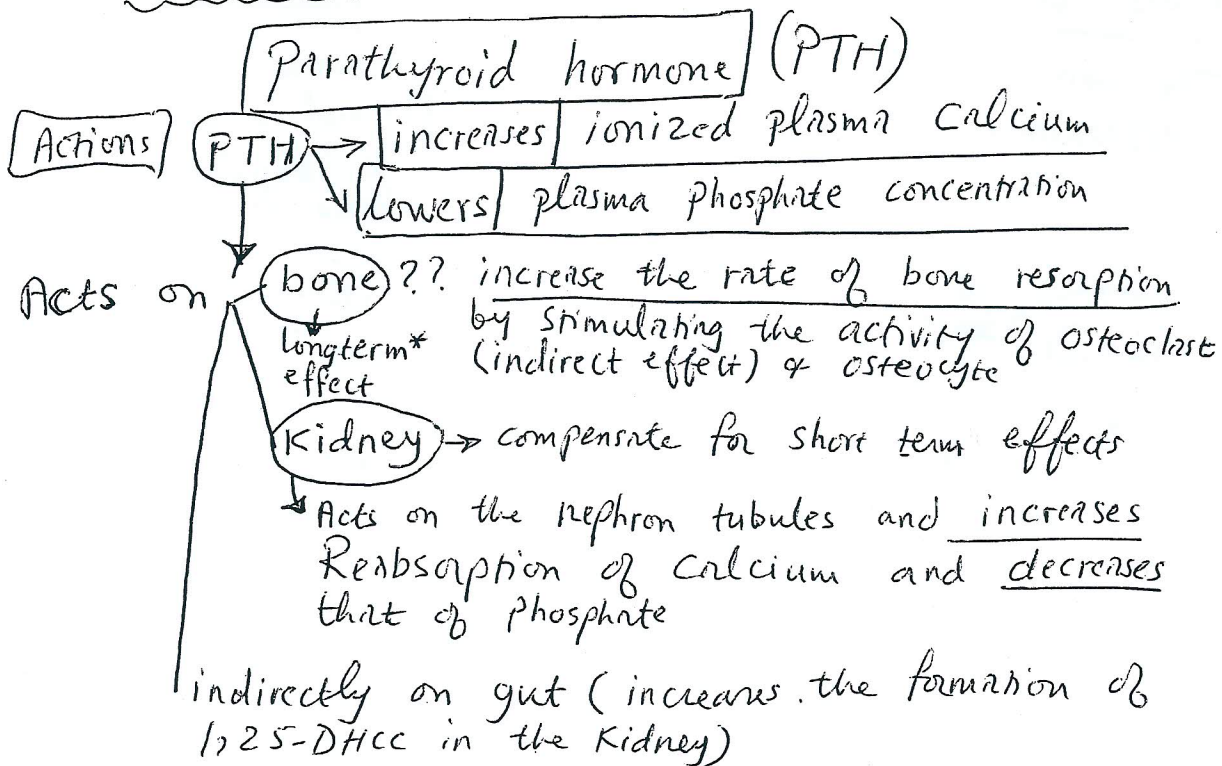 Parathyroid hormone (PTH)
Actions PTH → increases ionized plasma Calcium
lowers plasma phosphate concentration
Acts on bone ?? increase the rate of bone resorption
by stimulating the activity of osteoclast
longterm* (indirect effect) & osteocyte
effect
Kidney → compensate for short term effects
Acts on the nephron tubules and increases
Reabsorption of Calcium and decreases
that of phosphate
indirectly on gut (increases the formation of
1,25-DHCC in the Kidney)